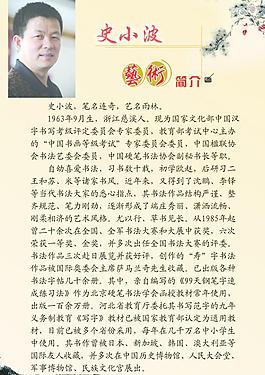 史小波
藝術 简介
史小波，笔名连奇，艺名雨林。
1963年9月生，浙江慈溪人，现为国家文化部中国汉
字书写考级评定委员会专家委员，教育部考试中心主办
的“中国书画等级考试”专家委员会委员，中国楹联协
会书法艺委会委员，中国硬笔书法协会副秘书长等职。
自幼喜爱书法，习书数十载，初学欧赵，后研习二
王和苏、米等诸家书风。近年来，又得到了沈鹏、李铎
等当代书法大家的悉心指点，其书法作品结构严谨、整
齐规范、笔力刚劲，逐渐形成了端庄秀丽，潇洒流畅，
刚柔相济的艺术风格，尤以行、草书见长，从1985年起
曾二十余次在全国、全军书法大赛和大展中获奖，六次
荣获一等奖、金奖，并多次出任全国书法大赛的评委。
书法作品三次赴日展览并获好评，创作的“寿”字书法
作品被国际奥委会主席萨马兰奇先生收藏，已出版各种
书法字帖几十余册，其中，亲自编写的《99天钢笔字速
成练习法》作为北京硬笔书法学会函授教材常年使用，
出版一百余万册，河北省教育厅委托其书写范字的九年
义务制教育《写字》教材已被国家教育部认定为通用教
材，目前已被多个省份采用，每年在几千万名中小学生
中使用，其书作曾被日本、新加坡、韩国、澳大利亚等
国际友人收藏，并多次在中国历史博物馆，人民大会堂，
军事博物馆、民族文化宫展出。